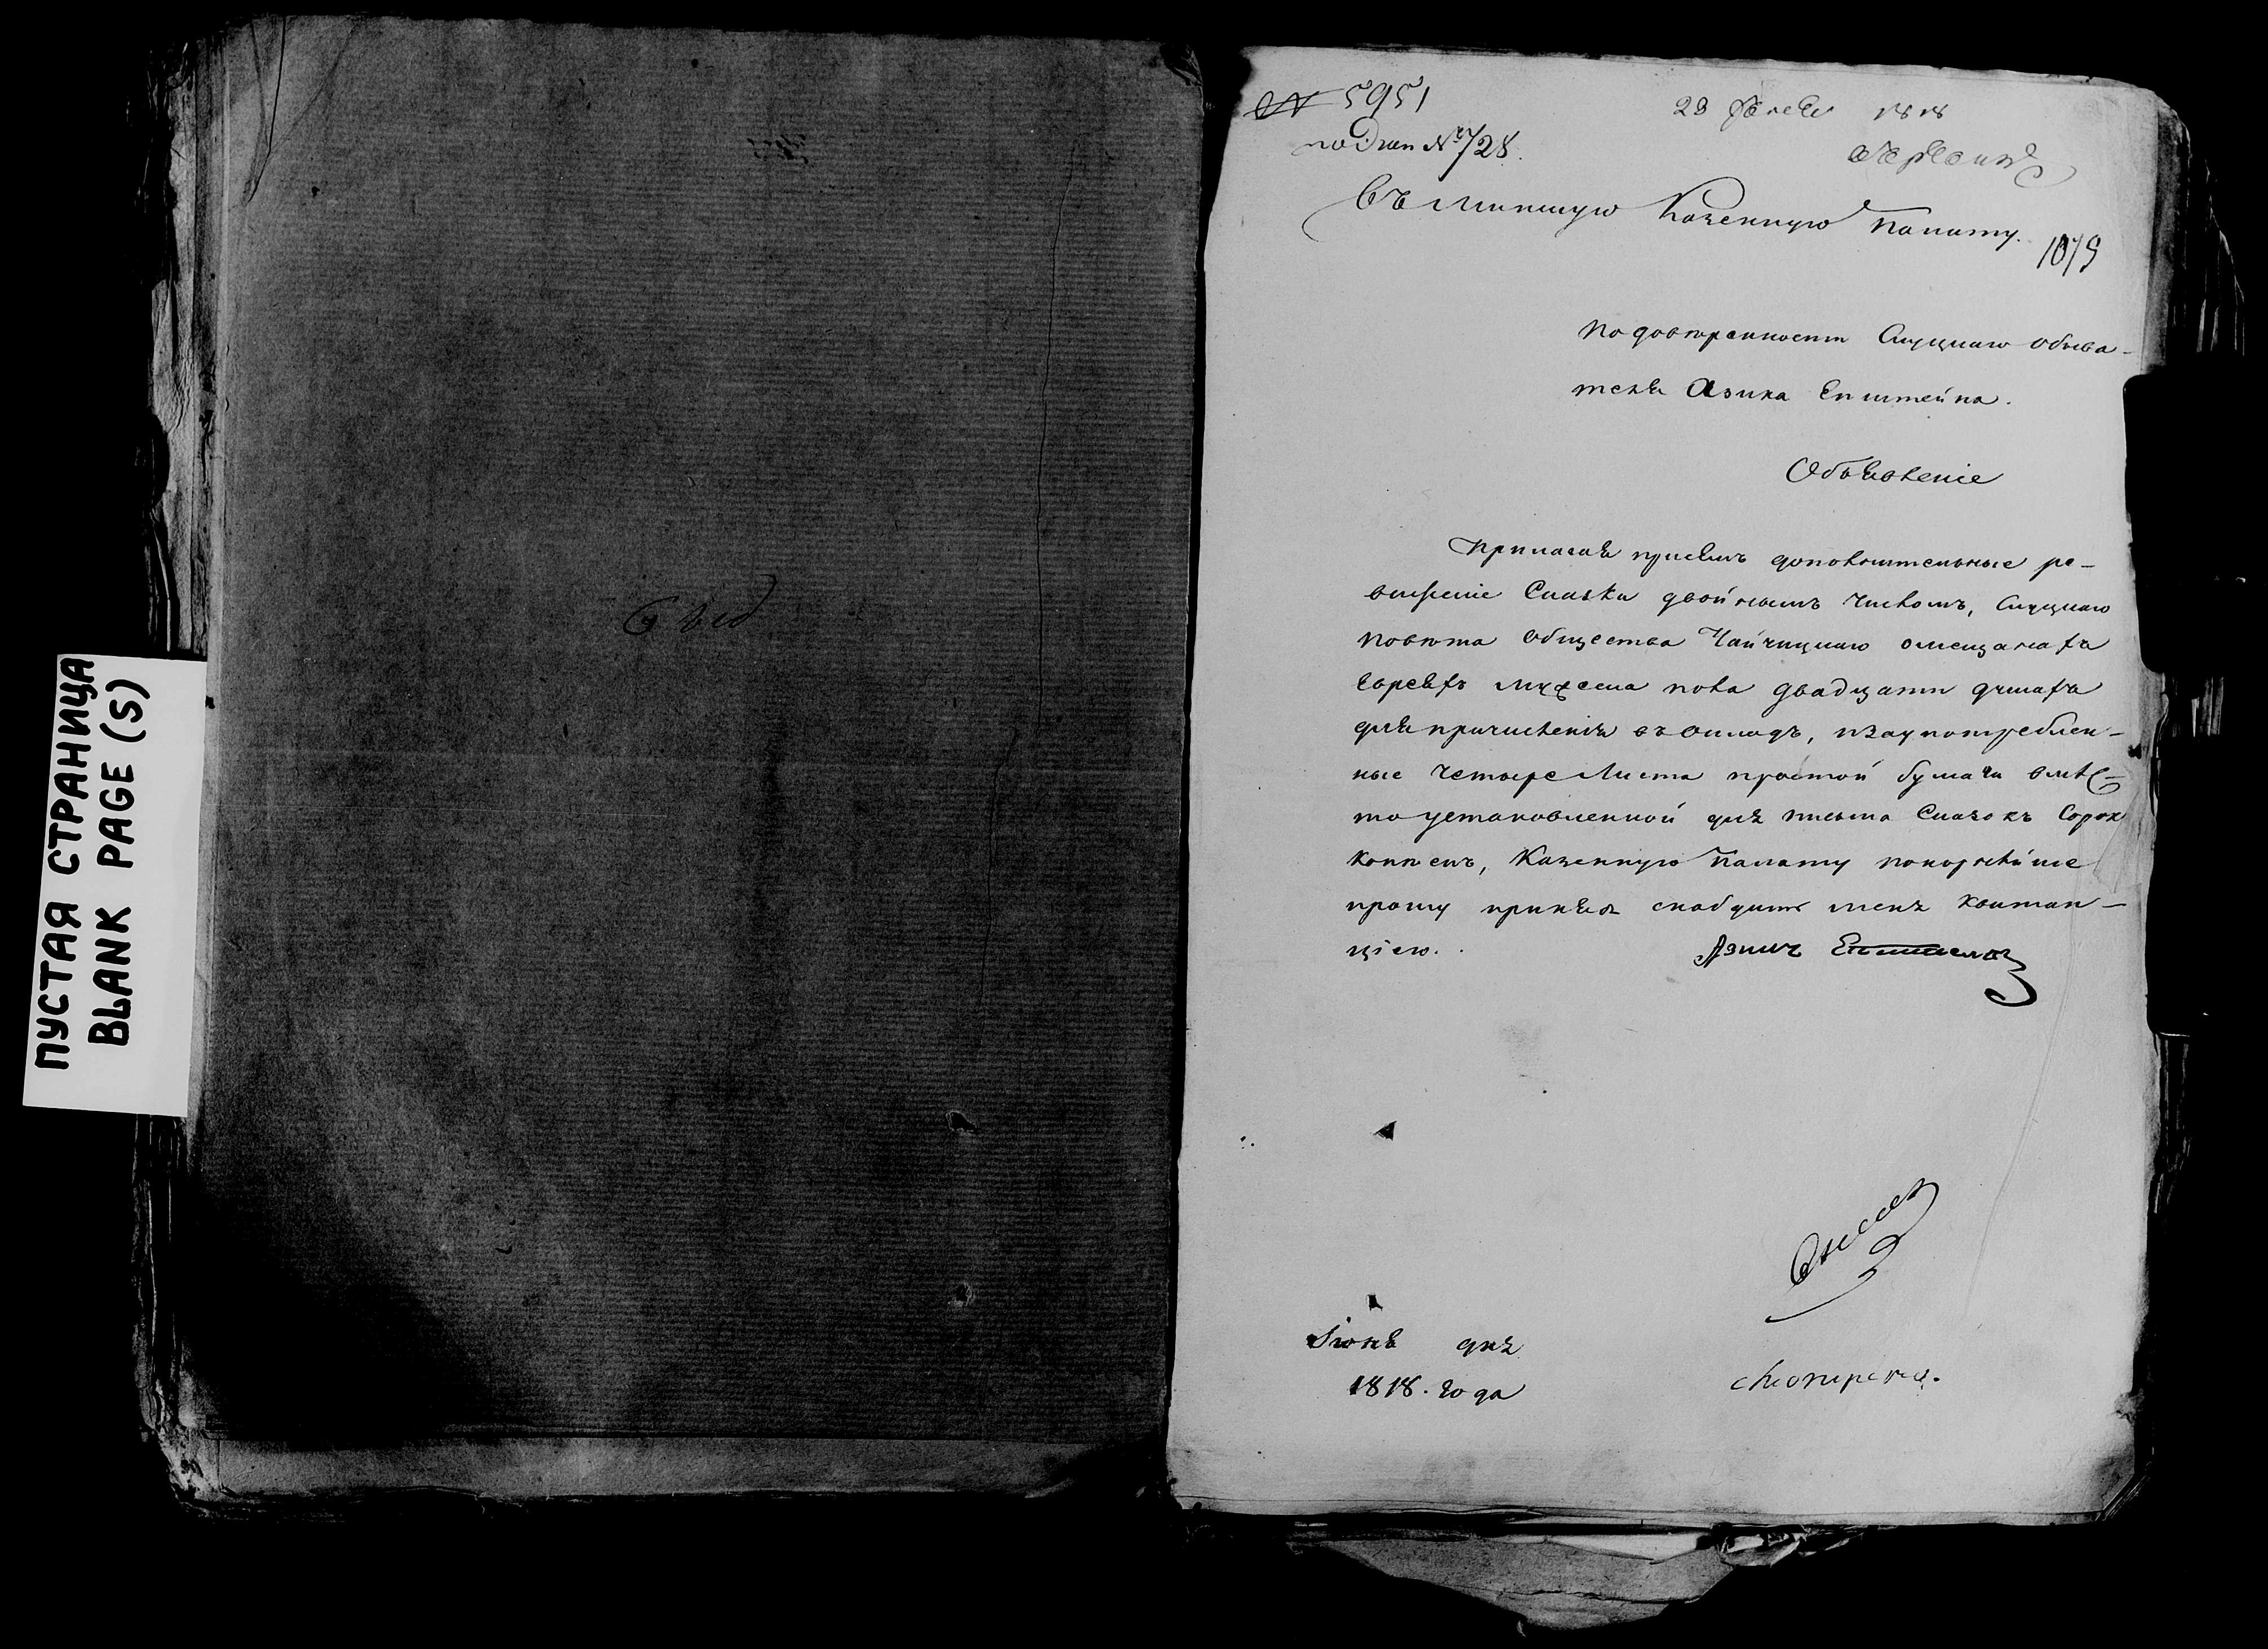 ПУСТАЯ СТРАНИЦА
BLANK PAGE (S)
№ 5951
28.
1818
Въ Минскую Казенную Палату.
1079
По довѣренности Слуцкаго обыва-
теля Азика Епштейна.
Объявленіе
Прилагая присемъ дополнительные ре-
визкіе Сказки двойнымъ числомъ, Слуцкаго
Повѣта общества Чайчицкаго омещанахъ
Евреяхъ мужеска пола двадцати душахъ
для причисленія въ окладъ, изаупотреблен-
ные четыре листа простой бумаги вмѣс-
то установленной для письма Сказокъ Сорок
копѣекъ, Казенную Палату покорнѣйше
прошу принявъ снабдить меня квитан-
ціею.
Азикъ Епштейнъ
Іюня дня
1818. года